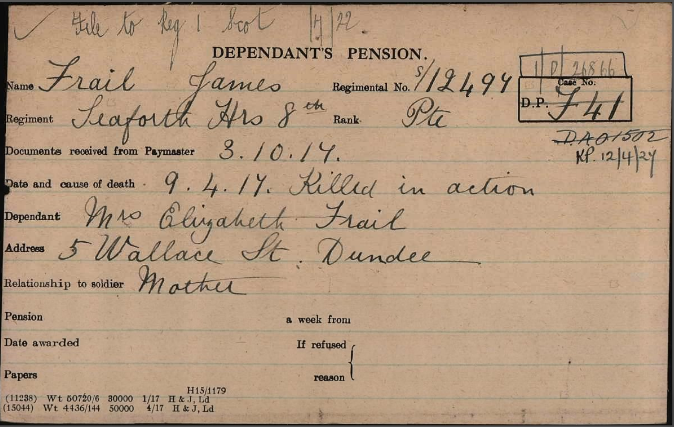 ✓ File to Reg 1 Scot 22
DEPENDANT'S PENSION.
1/D/26866
Name Frail James Regimental No. S/12494
Case No.
D.P. F41
Regiment Seaforth Hrs 8th Rank Pte
DA01502
12/4/27
Documents received from Paymaster 3.10.17.
Date and cause of death 9.4.17. Killed in action
Dependant Mrs Elizabeth Frail
Address 5 Wallace St. Dundee
Relationship to soldier Mother
Pension a week from
Date awarded If refused
Papers reason
H15/1179
(11238) Wt 50720/6 30000 1/17 H & J, Ld
(15044) Wt 4436/144 50000 4/17 H & J, Ld